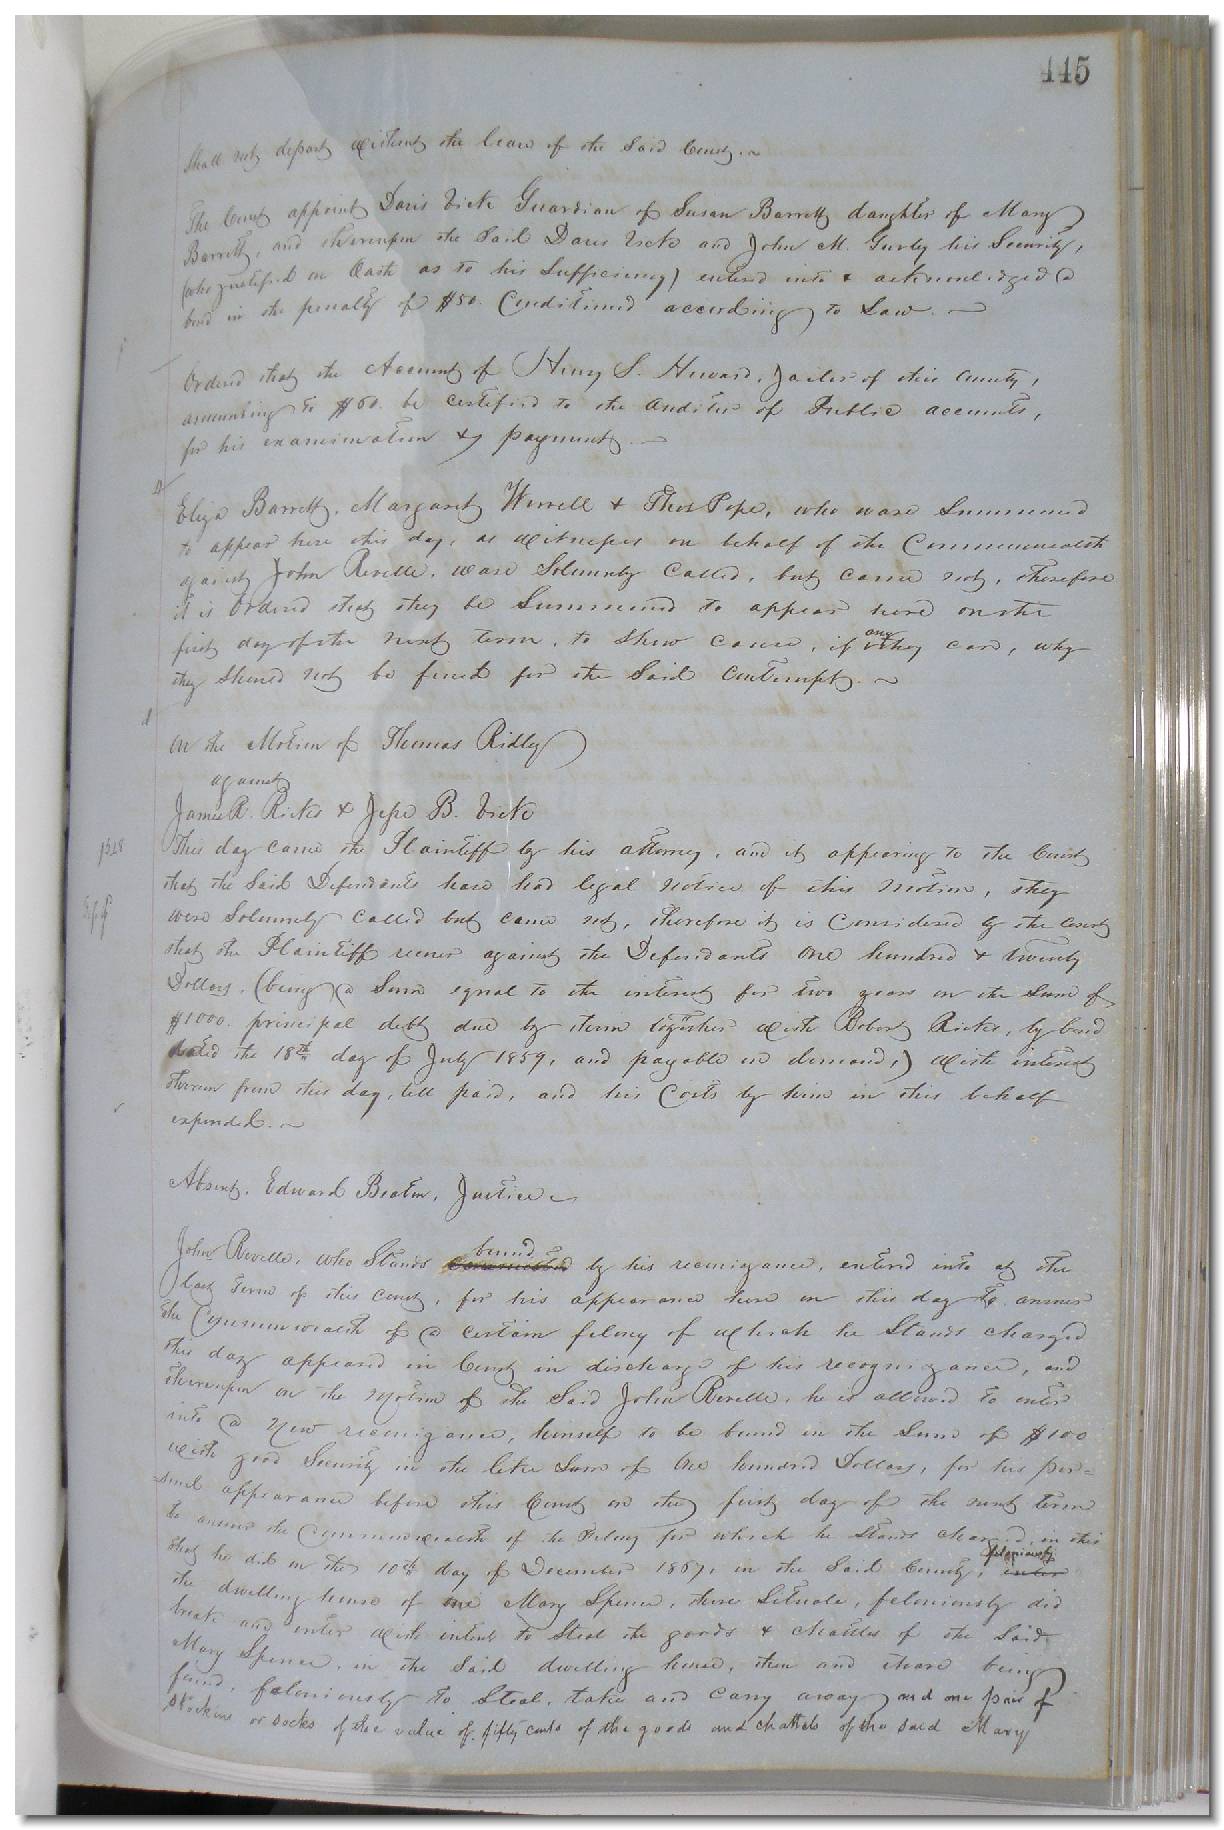 445
Shall not depart without the leave of the Said Court.
The Court appoint Davis Vick Guardian of Susan Barrett daughter of Mary
Barrett, and thereupon the Said Davis Vick and John M. Gurley his Security,
(who justified on Oath as to his Sufficiency) entered into & acknowledged a
bond in the penalty of $50. Conditioned according to Law.
Ordered that the Account of Henry S. Howard, Jailor of this County,
amounting to $60. be certified to the Auditor of Public accounts,
for his examination & payment.
Eliza Barrett, Margaret Worrell & Thos Pope, who ware Summoned
to appear here this day, as witnesses on behalf of the Commonwealth
against John Reville, ware Solemnly Called, but came not, therefore
it is Ordered that they be Summoned to appear here on the
first day of the next term, to Shew cause, if any they can, why
they Should not be fined for the Said Contempt.
On the Motion of Thomas Ridley
against
James R. Ricks & Jesse B. Vick
This day came the Plaintiff by his attorney, and it appearing to the Court
that the Said Defendants have had legal notice of this motion, they
were Solemnly Called but came not, therefore it is Considered by the Court
that the Plaintiff recover against the Defendants One hundred & twenty
Dollars, (being a Sum equal to the interest for two years on the Sum of
$1000. principal debt due by them together with Robert Ricks, by bond
dated the 18th day of July 1859, and payable on demand,) with interest
thereon from this day, till paid, and his Costs by him in this behalf
expended.
Absent, Edward Beaton, Justice
John Reville, who Stands bound by his recognizance, entered into at the
last term of this Court, for his appearance here on this day to answer
the Commonwealth of a certain felony of which he Stands charged
this day appeared in Court in discharge of his recognizance, and
thereupon on the motion of the Said John Reville, he is allowed to enter
into a New recognizance, himself to be bound in the Sum of $100
with good Security in the like Sum of One hundred Dollars, for his per=
sonal appearance before this Court on the first day of the next term
to answer the Commonwealth of the Felony for which he Stands charged, in this
that he did on the 10th day of December 1867, in the Said County, feloniously enter
the dwelling house of one Mary Spence, there Situate, feloniously did
break and enter with intent to Steal the goods & chattles of the Said
Mary Spence, in the Said dwelling house, then and there being
found, feloniously to Steal, take and carry away and one pair of
Stockins or socks of the value of fifty cents of the goods and chattels of the said Mary